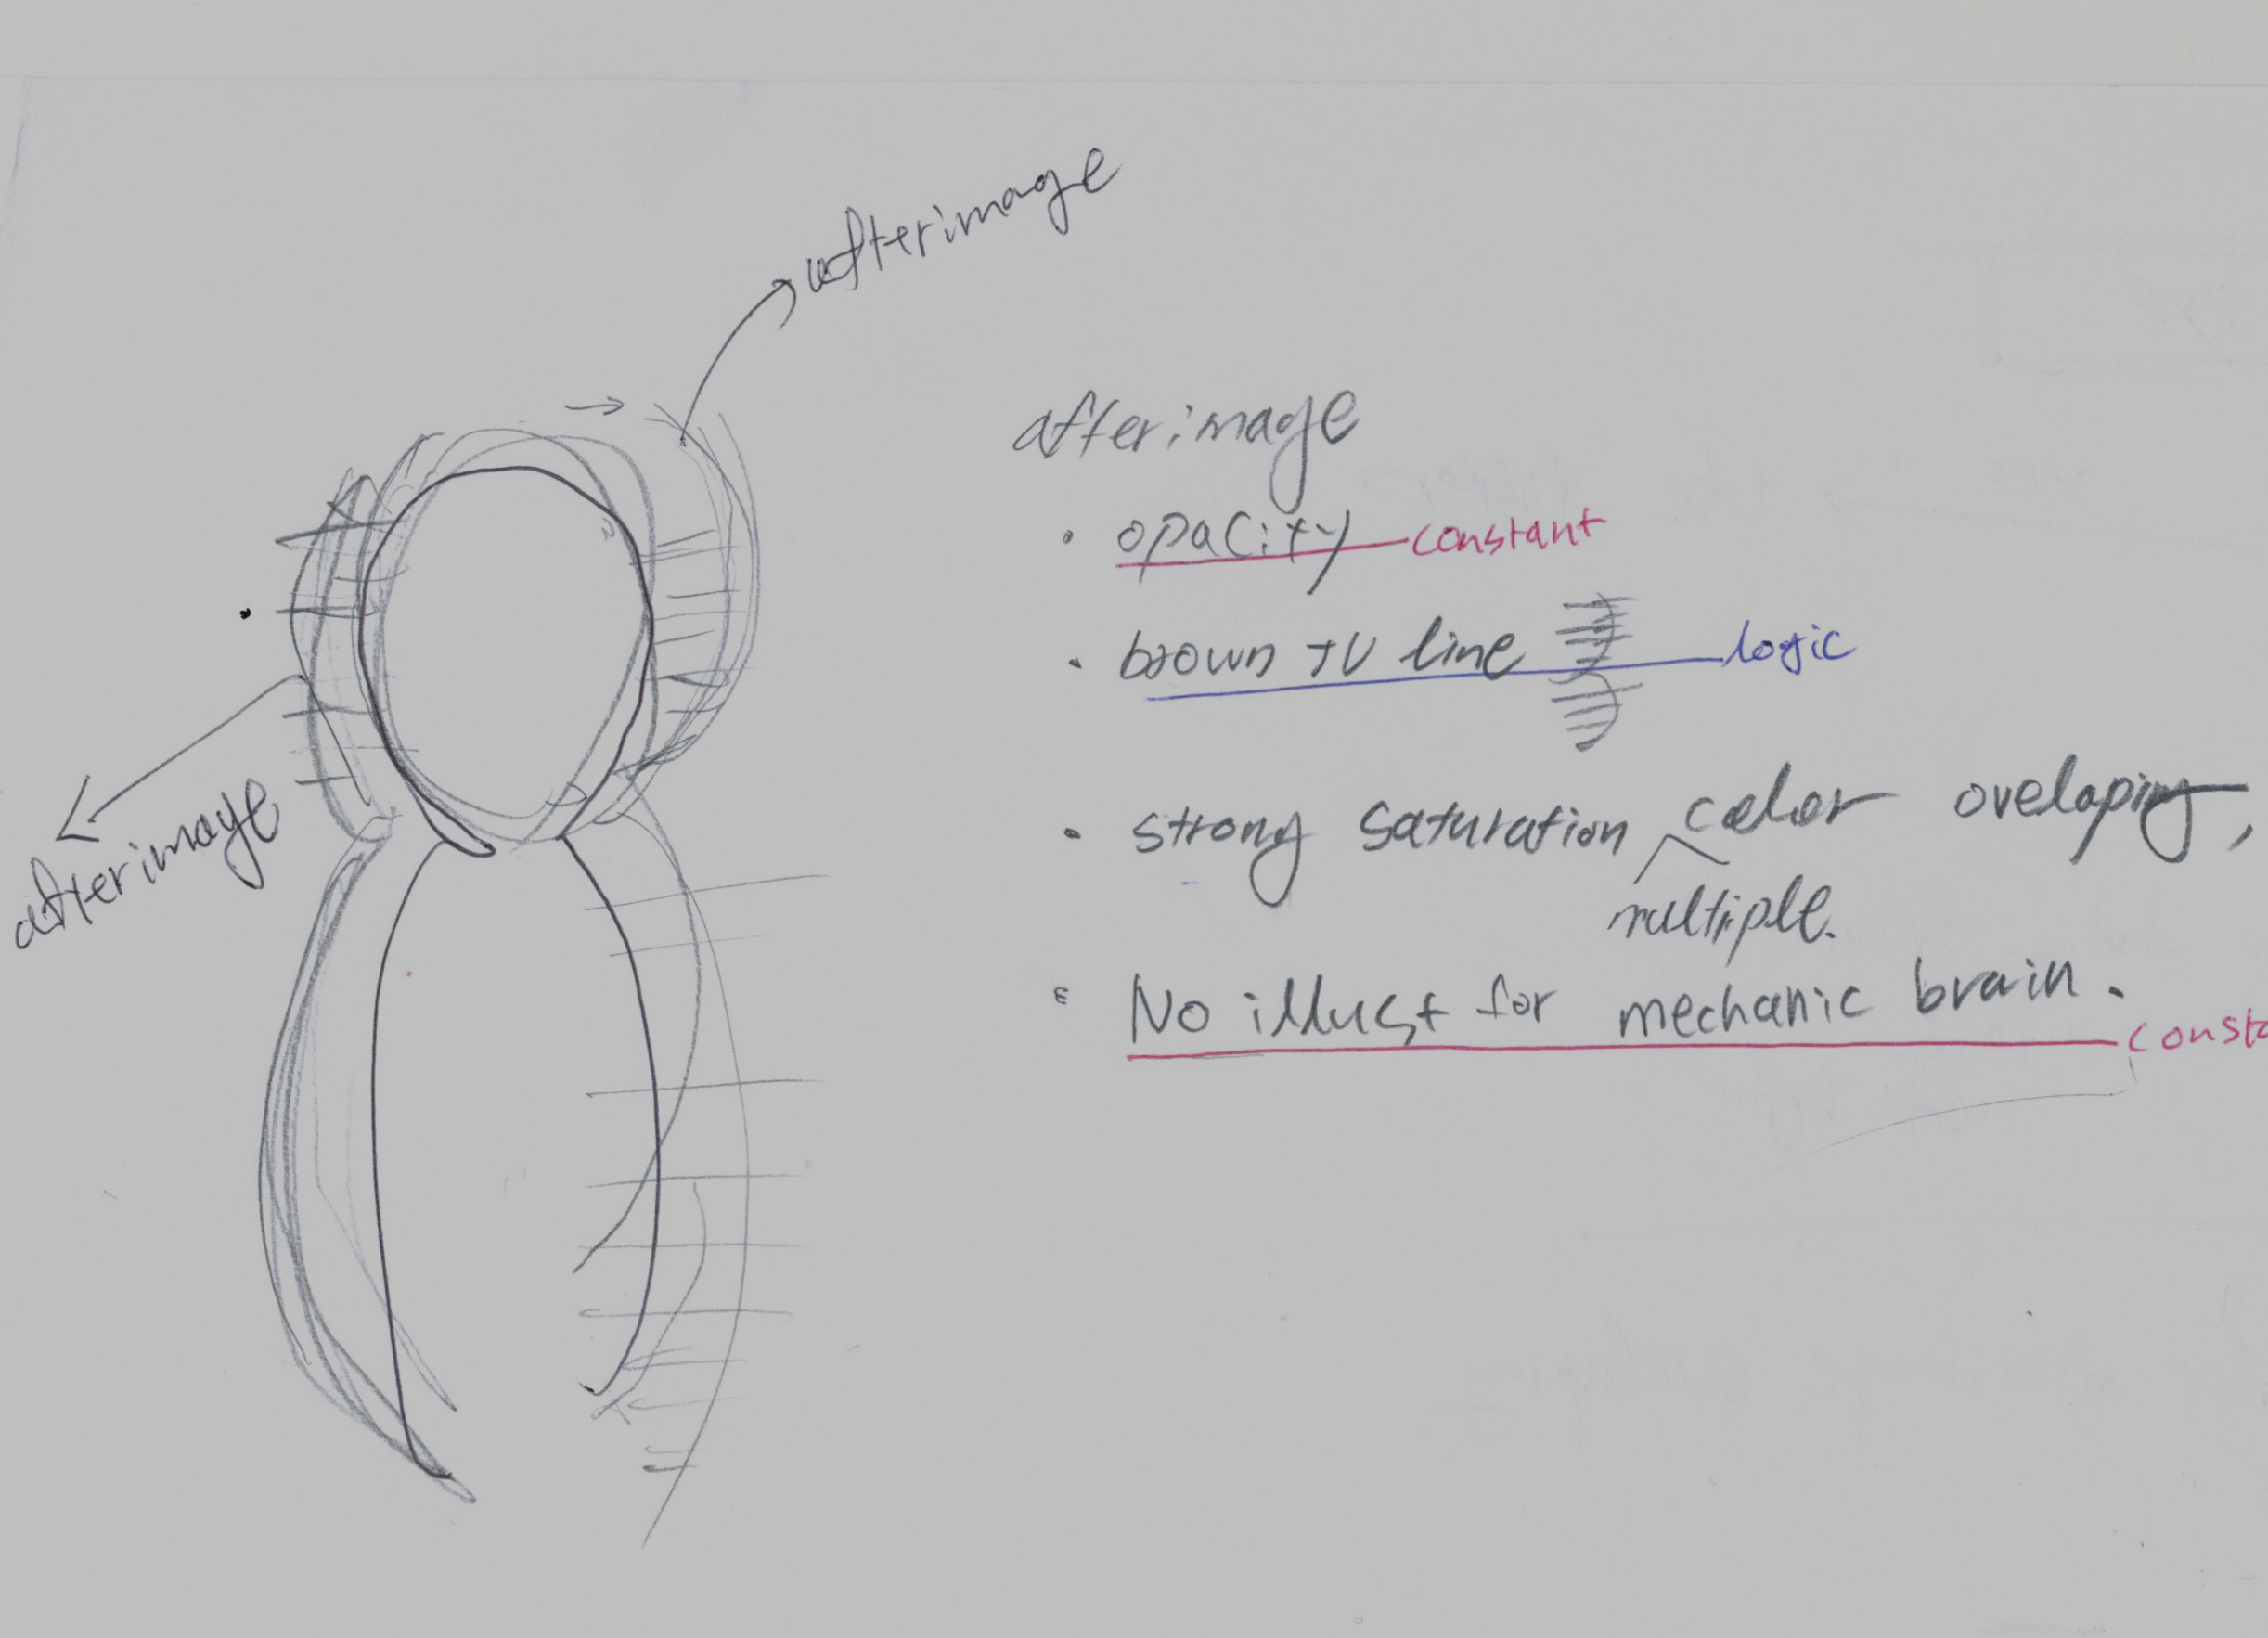 afterimage
afterimage
afterimage
· opacity constant
· brown TV line logic
· strong saturation color ovelaping,
multiple.
· No illust for mechanic brain. consta